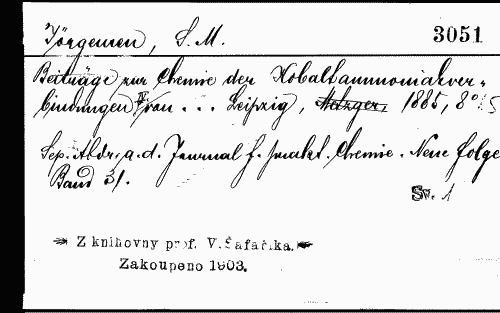 Jörgensen, S. M. 3051
Beiträge zur Chemie der Kobaltammoniakver-
bindungen IV von ... Leipzig, Metzger, 1885, 8°
Sep. Abdr. a. d. Journal f. prakt. Chemie. Neue Folge
Band 31.
Sv. 1
Z knihovny prof. V. Šafaříka.
Zakoupeno 1903.